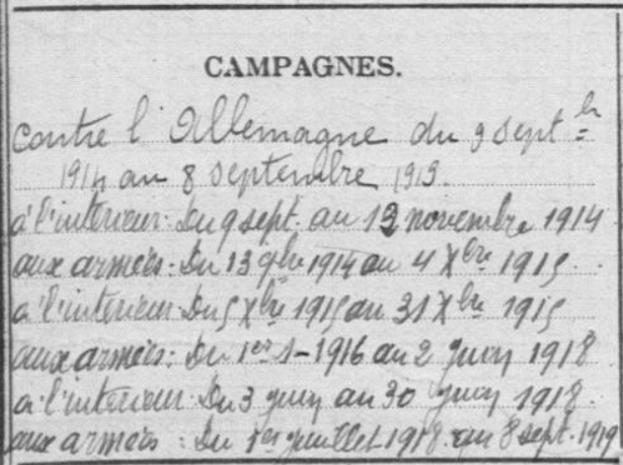 CAMPAGNES.
contre l'Allemagne du 9 septbre
1914 au 8 septembre 1919.
à l'intérieur: Du 9 sept. au 12 novembre 1914
aux armées: Du 13 9bre 1914 au 4 Xbre 1915.
à l'intérieur Du 5 Xbre 1915 au 31 Xbre 1915
aux armées: Du 1er 1-1916 au 2 juin 1918
à l'intérieur Du 3 juin au 30 juin 1918.
aux armées: Du 1er juillet 1918 au 8 sept. 1919